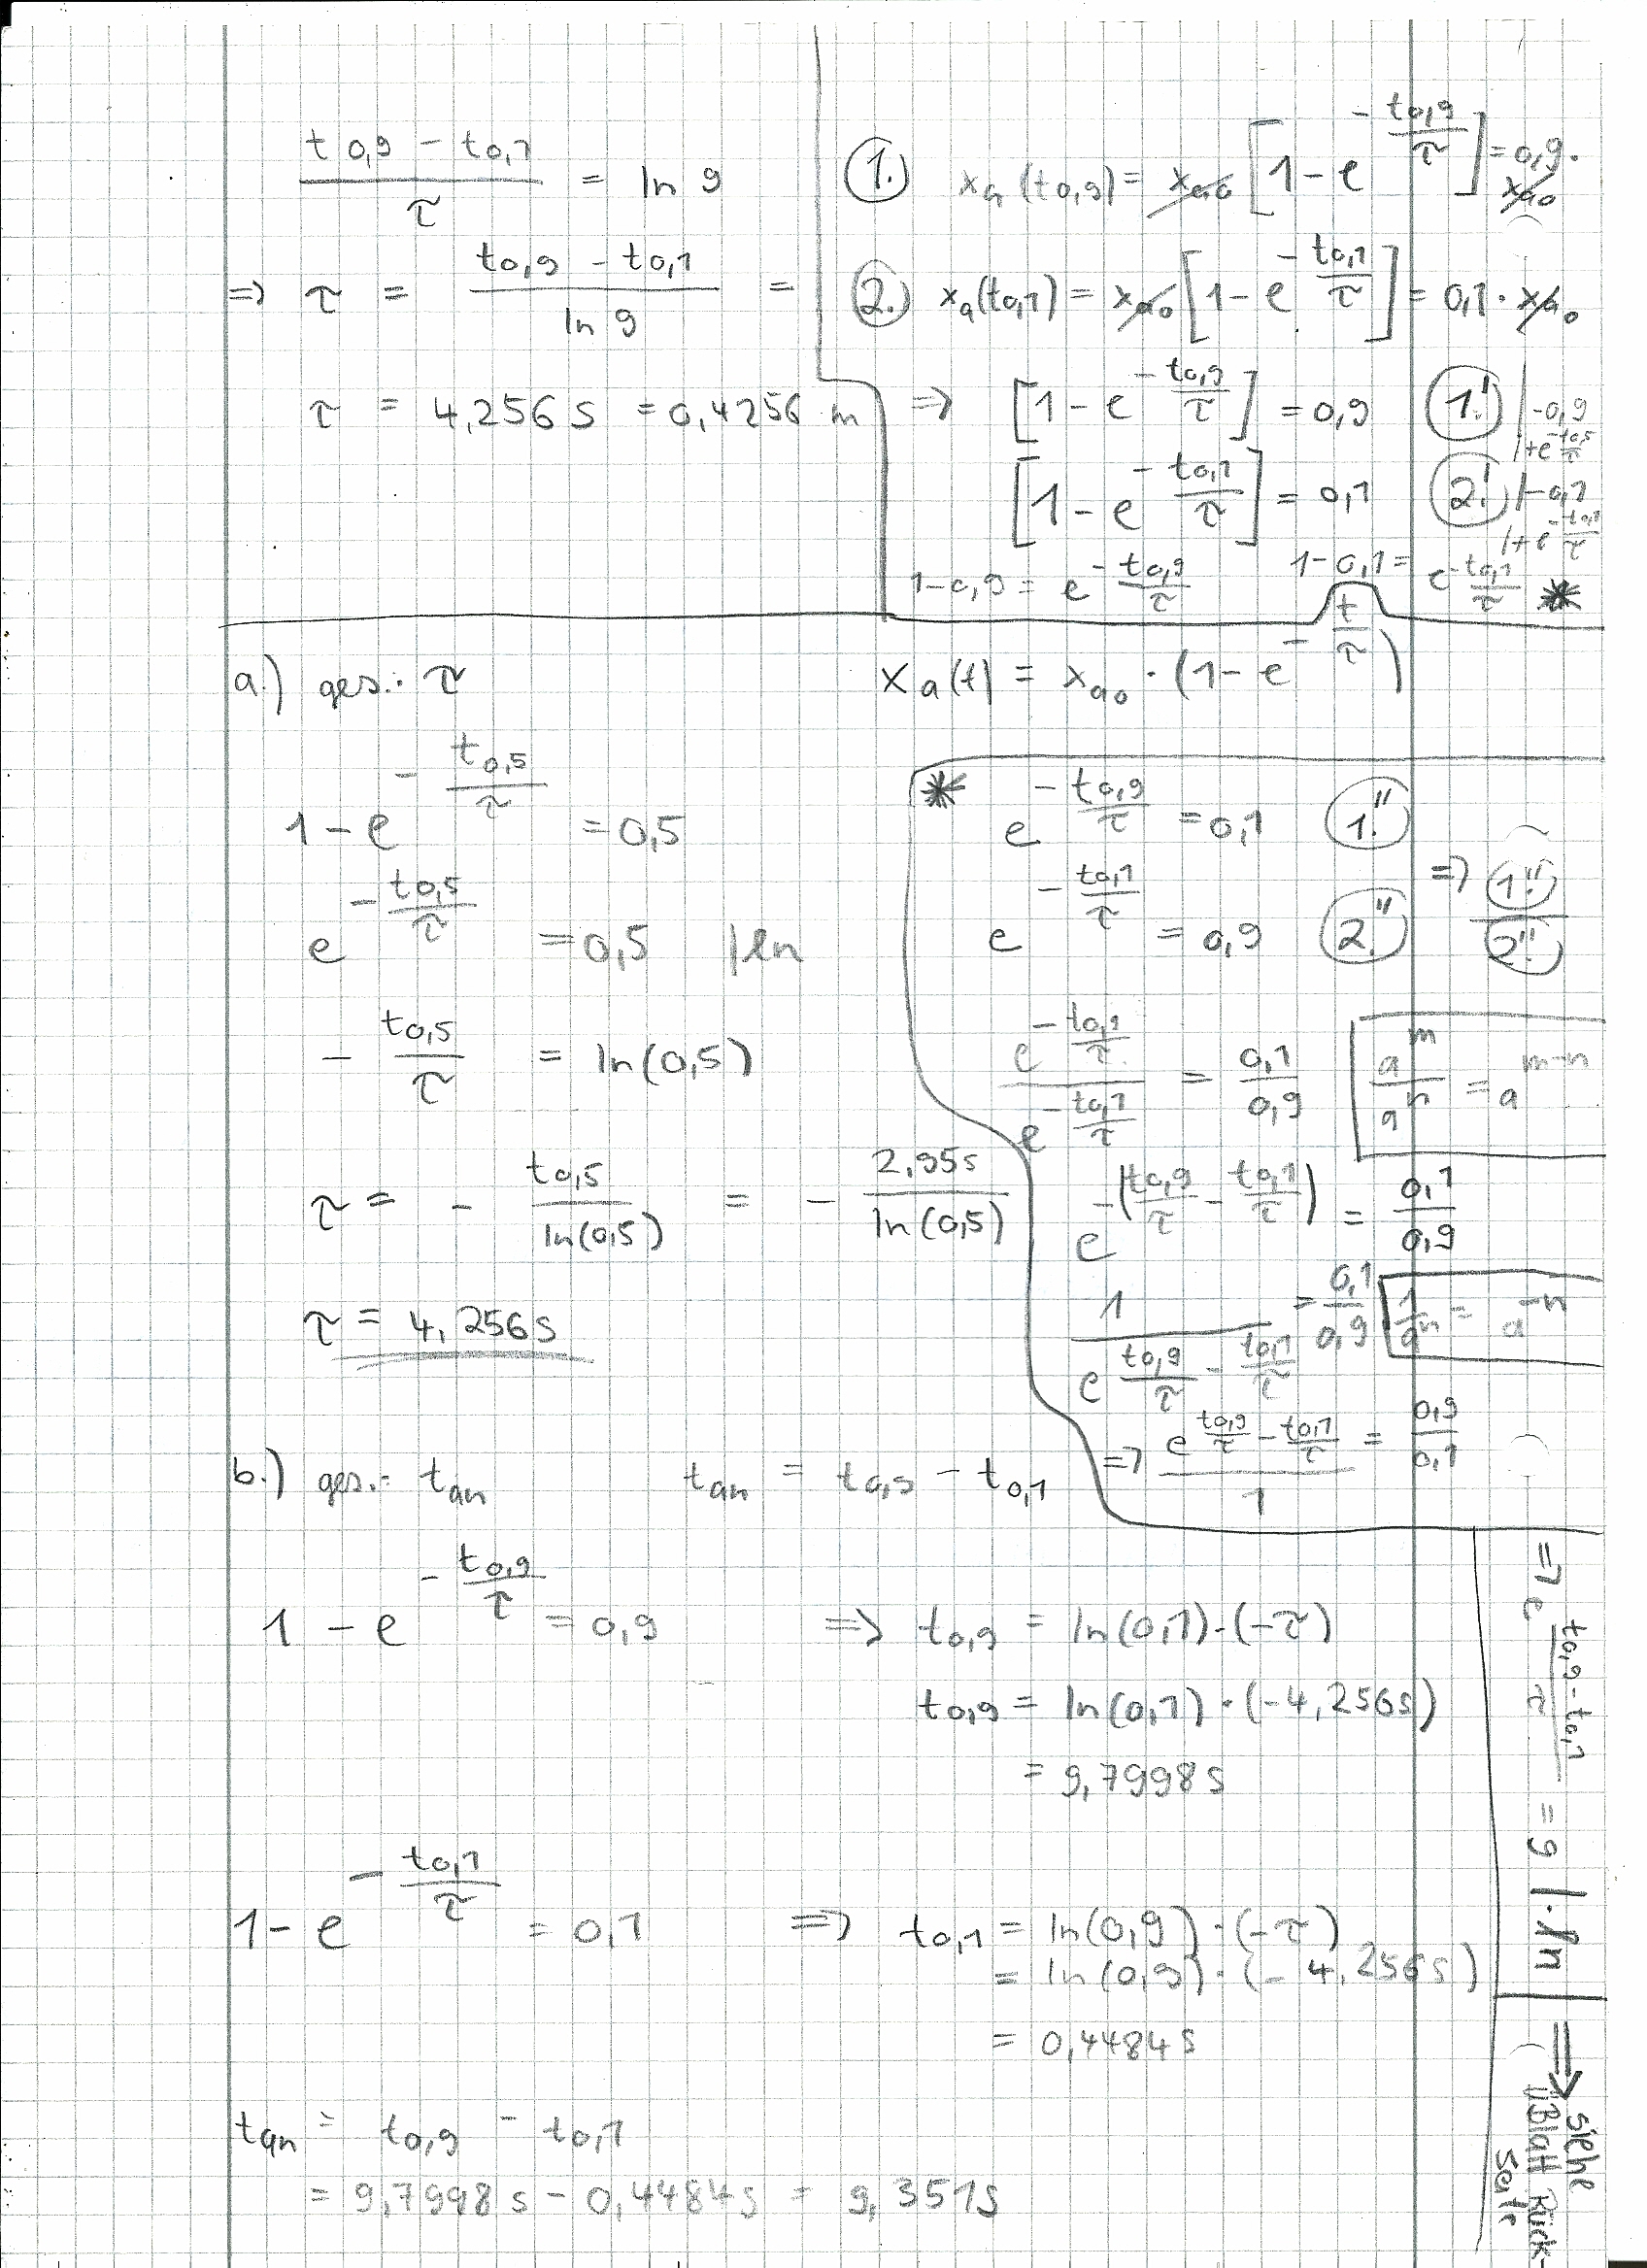 (t0,9 - t0,1)/τ = ln 9
=> τ = (t0,9 - t0,1)/(ln 9) =
τ = 4,256 s = 0,4256 m
1.) xa(t0,9) = xa0 [1 - e^(-t0,9/τ)] = 0,9 · xa0
2.) xa(t0,1) = xa0 [1 - e^(-t0,1/τ)] = 0,1 · xa0
=> [1 - e^(-t0,9/τ)] = 0,9 1.' |-0,9 |+e^(-t0,5/τ)
[1 - e^(-t0,1/τ)] = 0,1 2.' |-0,1 |+e^(-t0,1/τ)
1-0,9 = e^(-t0,9/τ) 1-0,1 = e^(-t0,1/τ) *
a.) ges.: τ xa(t) = xa0 · (1 - e^(-t/τ))
1 - e^(-t0,5/τ) = 0,5
e^(-t0,5/τ) = 0,5 |ln
- t0,5/τ = ln(0,5)
τ = - t0,5/ln(0,5) = - 2,95s/ln(0,5)
τ = 4,256s
* e^(-t0,9/τ) = 0,1 1.''
e^(-t0,1/τ) = 0,9 2.'' => 1.''/2.''
e^(-t0,9/τ)/e^(-t0,1/τ) = 0,1/0,9 a^m/a^n = a^(m-n)
e^(-(t0,9/τ - t0,1/τ)) = 0,1/0,9
1/e^(t0,9/τ - t0,1/τ) = 0,1/0,9 1/a^n = a^-n
=> e^(t0,9/τ - t0,1/τ)/1 = 0,9/0,1
=> e^((t0,9 - t0,1)/τ) = 9 | · ln
=> siehe
ÜBlatt Rück-
seite
b.) ges.: tan tan = t0,9 - t0,1
1 - e^(-t0,9/τ) = 0,9 => t0,9 = ln(0,1) · (-τ)
t0,9 = ln(0,1) · (-4,256s)
= 9,7998 s
1 - e^(-t0,1/τ) = 0,1 => t0,1 = ln(0,9) · (-τ)
= ln(0,9) · (-4,256s)
= 0,4484 s
tan = t0,9 - t0,1
= 9,7998 s - 0,4484s = 9,351s